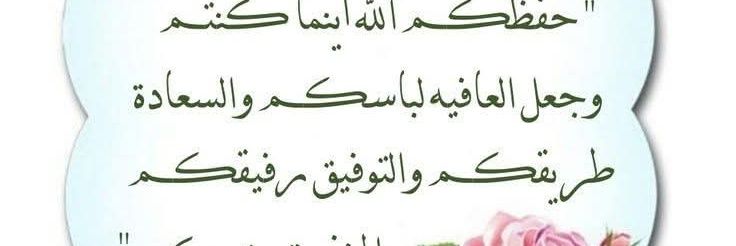 "حفظكم الله أينما كنتم
وجعل العافيه لباسكم والسعادة
طريقكم والتوفيق رفيقكم
"